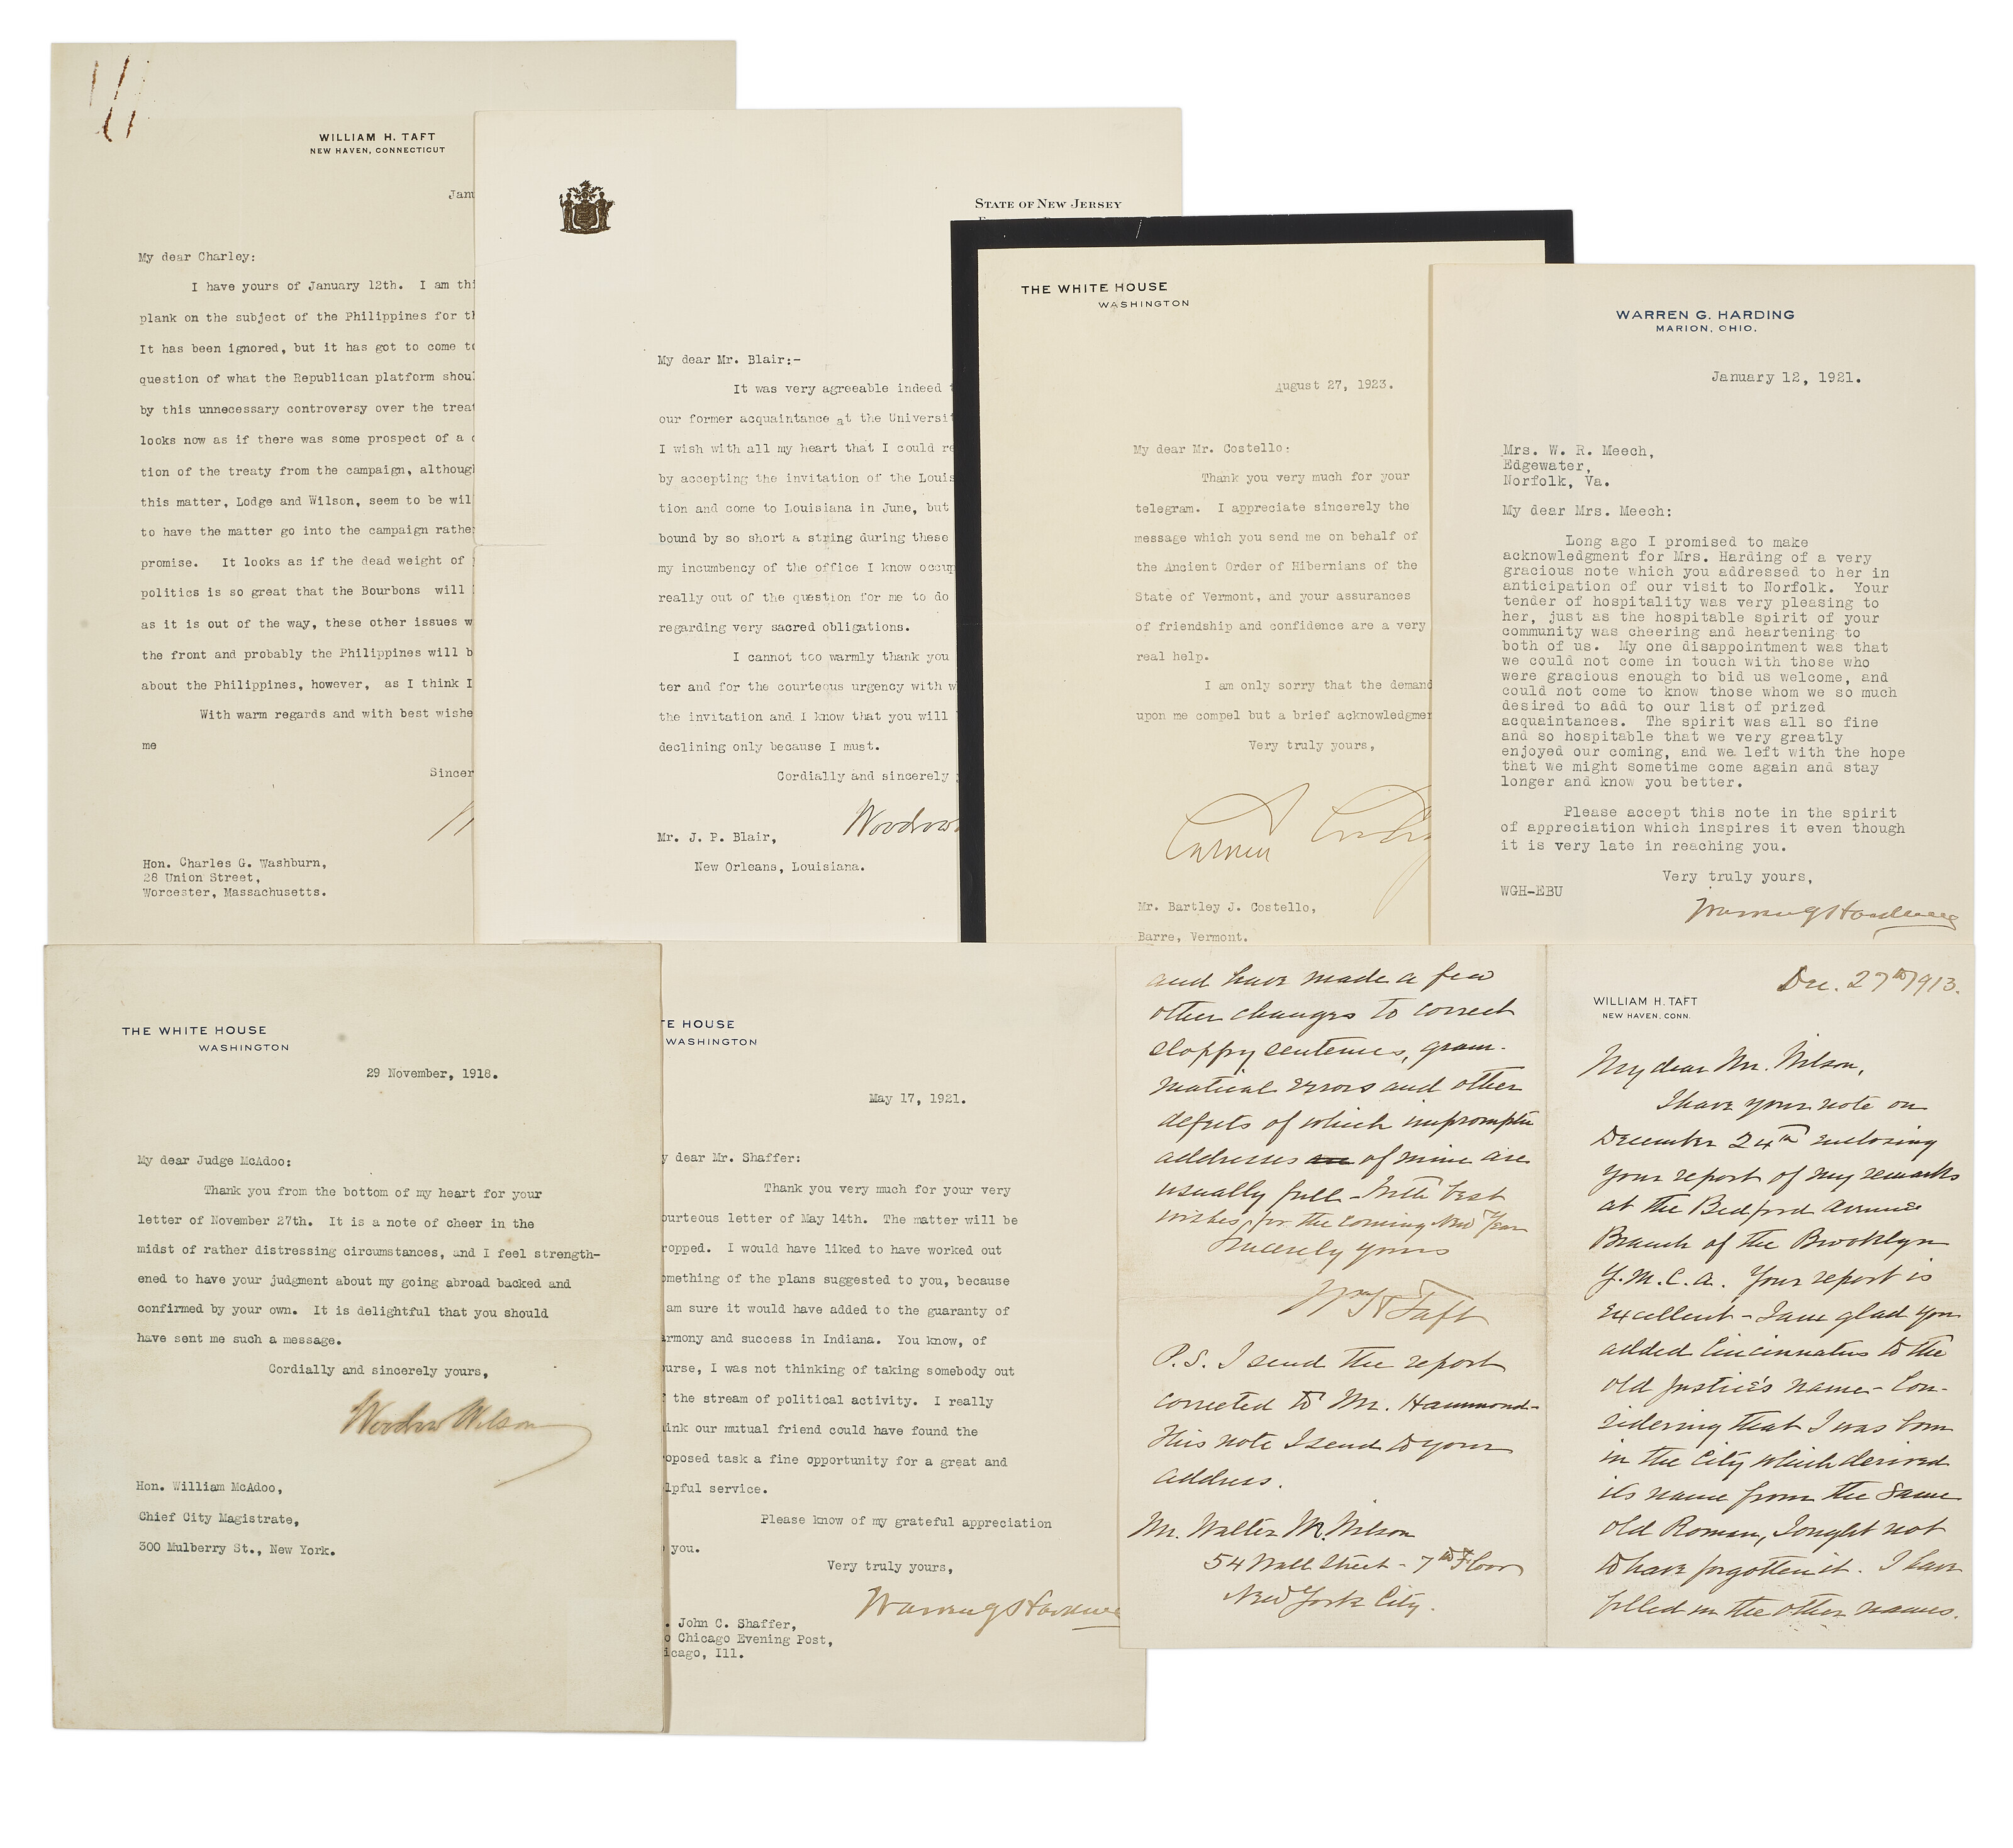 WILLIAM H. TAFT
NEW HAVEN, CONNECTICUT
Janu
My dear Charley:
I have yours of January 12th.  I am thi
plank on the subject of the Philippines for th
It has been ignored, but it has got to come to
question of what the Republican platform shoul
by this unnecessary controversy over the treat
looks now as if there was some prospect of a c
tion of the treaty from the campaign, although
this matter, Lodge and Wilson, seem to be wil
to have the matter go into the campaign rather
promise.  It looks as if the dead weight of
politics is so great that the Bourbons will
as it is out of the way, these other issues w
the front and probably the Philippines will b
about the Philippines, however, as I think I
With warm regards and with best wishe
me
Sincer
Hon. Charles G. Washburn,
28 Union Street,
Worcester, Massachusetts.
STATE OF NEW JERSEY
My dear Mr. Blair:-
It was very agreeable indeed t
our former acquaintance at the Universit
I wish with all my heart that I could re
by accepting the invitation of the Louis
tion and come to Louisiana in June, but
bound by so short a string during these
my incumbency of the office I know occup
really out of the question for me to do
regarding very sacred obligations.
I cannot too warmly thank you
ter and for the courteous urgency with w
the invitation and I know that you will
declining only because I must.
Cordially and sincerely y
Woodrow
Mr. J. P. Blair,
New Orleans, Louisiana.
THE WHITE HOUSE
WASHINGTON
August 27, 1923.
My dear Mr. Costello:
Thank you very much for your
telegram.  I appreciate sincerely the
message which you send me on behalf of
the Ancient Order of Hibernians of the
State of Vermont, and your assurances
of friendship and confidence are a very
real help.
I am only sorry that the demand
upon me compel but a brief acknowledgmen
Very truly yours,
Calvin Coolidg
Mr. Bartley J. Costello,
Barre, Vermont.
WARREN G. HARDING
MARION, OHIO.
January 12, 1921.
Mrs. W. R. Meech,
Edgewater,
Norfolk, Va.
My dear Mrs. Meech:
Long ago I promised to make
acknowledgment for Mrs. Harding of a very
gracious note which you addressed to her in
anticipation of our visit to Norfolk.  Your
tender of hospitality was very pleasing to
her, just as the hospitable spirit of your
community was cheering and heartening to
both of us.  My one disappointment was that
we could not come in touch with those who
were gracious enough to bid us welcome, and
could not come to know those whom we so much
desired to add to our list of prized
acquaintances.  The spirit was all so fine
and so hospitable that we very greatly
enjoyed our coming, and we left with the hope
that we might sometime come again and stay
longer and know you better.
Please accept this note in the spirit
of appreciation which inspires it even though
it is very late in reaching you.
Very truly yours,
WGH-EBU
Warren G Harding
THE WHITE HOUSE
WASHINGTON
29 November, 1918.
My dear Judge McAdoo:
Thank you from the bottom of my heart for your
letter of November 27th.  It is a note of cheer in the
midst of rather distressing circumstances, and I feel strength-
ened to have your judgment about my going abroad backed and
confirmed by your own.  It is delightful that you should
have sent me such a message.
Cordially and sincerely yours,
Woodrow Wilson
Hon. William McAdoo,
Chief City Magistrate,
300 Mulberry St., New York.
TE HOUSE
WASHINGTON
May 17, 1921.
y dear Mr. Shaffer:
Thank you very much for your very
ourteous letter of May 14th.  The matter will be
ropped.  I would have liked to have worked out
omething of the plans suggested to you, because
am sure it would have added to the guaranty of
armony and success in Indiana.  You know, of
urse, I was not thinking of taking somebody out
the stream of political activity.  I really
ink our mutual friend could have found the
oposed task a fine opportunity for a great and
lpful service.
Please know of my grateful appreciation
you.
Very truly yours,
Warren G Harding
. John C. Shaffer,
o Chicago Evening Post,
icago, Ill.
and have made a few
other changes to correct
sloppy sentences, gram-
matical errors and other
defects of which impromptu
addresses of mine are
usually full - With best
wishes for the coming New Year
Sincerely yours
Wm H Taft
P.S. I send the report
corrected to Mr. Hammond-
This note I send to your
address.
Mr. Walter M. Wilson
54 Wall Street - 7th Floor
New York City.
Dec. 27th 1913.
WILLIAM H. TAFT
NEW HAVEN, CONN.
My dear Mr. Wilson,
I have your note on
December 24th enclosing
your report of my remarks
at the Bedford Avenue
Branch of the Brooklyn
Y.M.C.A. Your report is
excellent - I am glad you
added Cincinnatus to the
old Justice's name - Con-
sidering that I was born
in the City which derived
its name from the same
old Roman, I ought not
to have forgotten it. I have
filled in the other names.